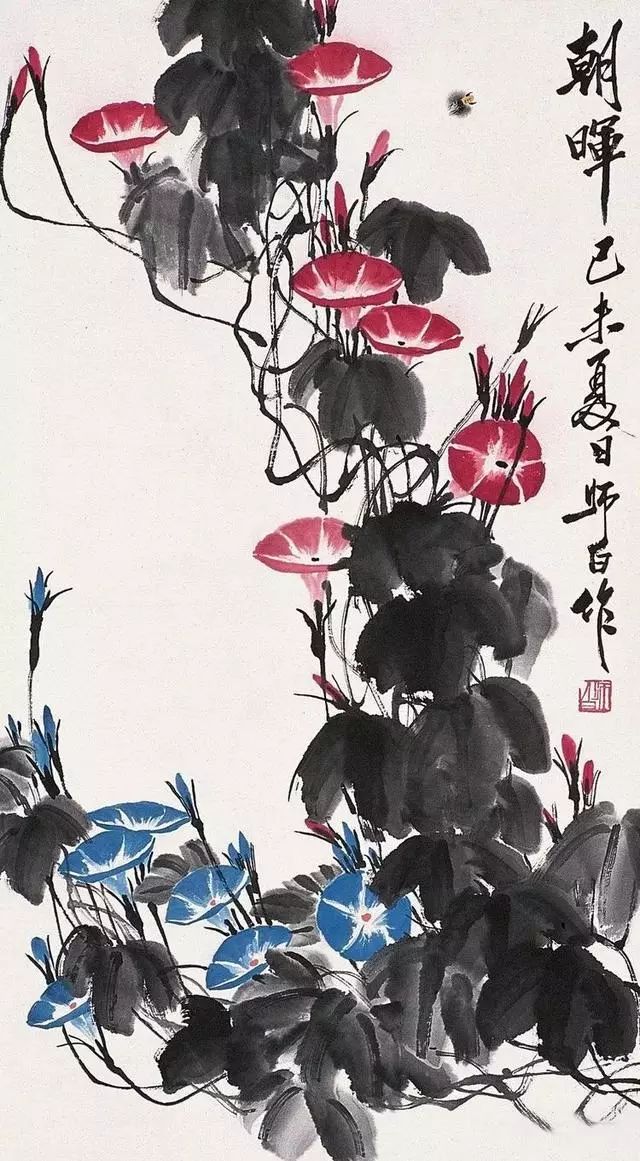 朝暉 己未夏日師白作